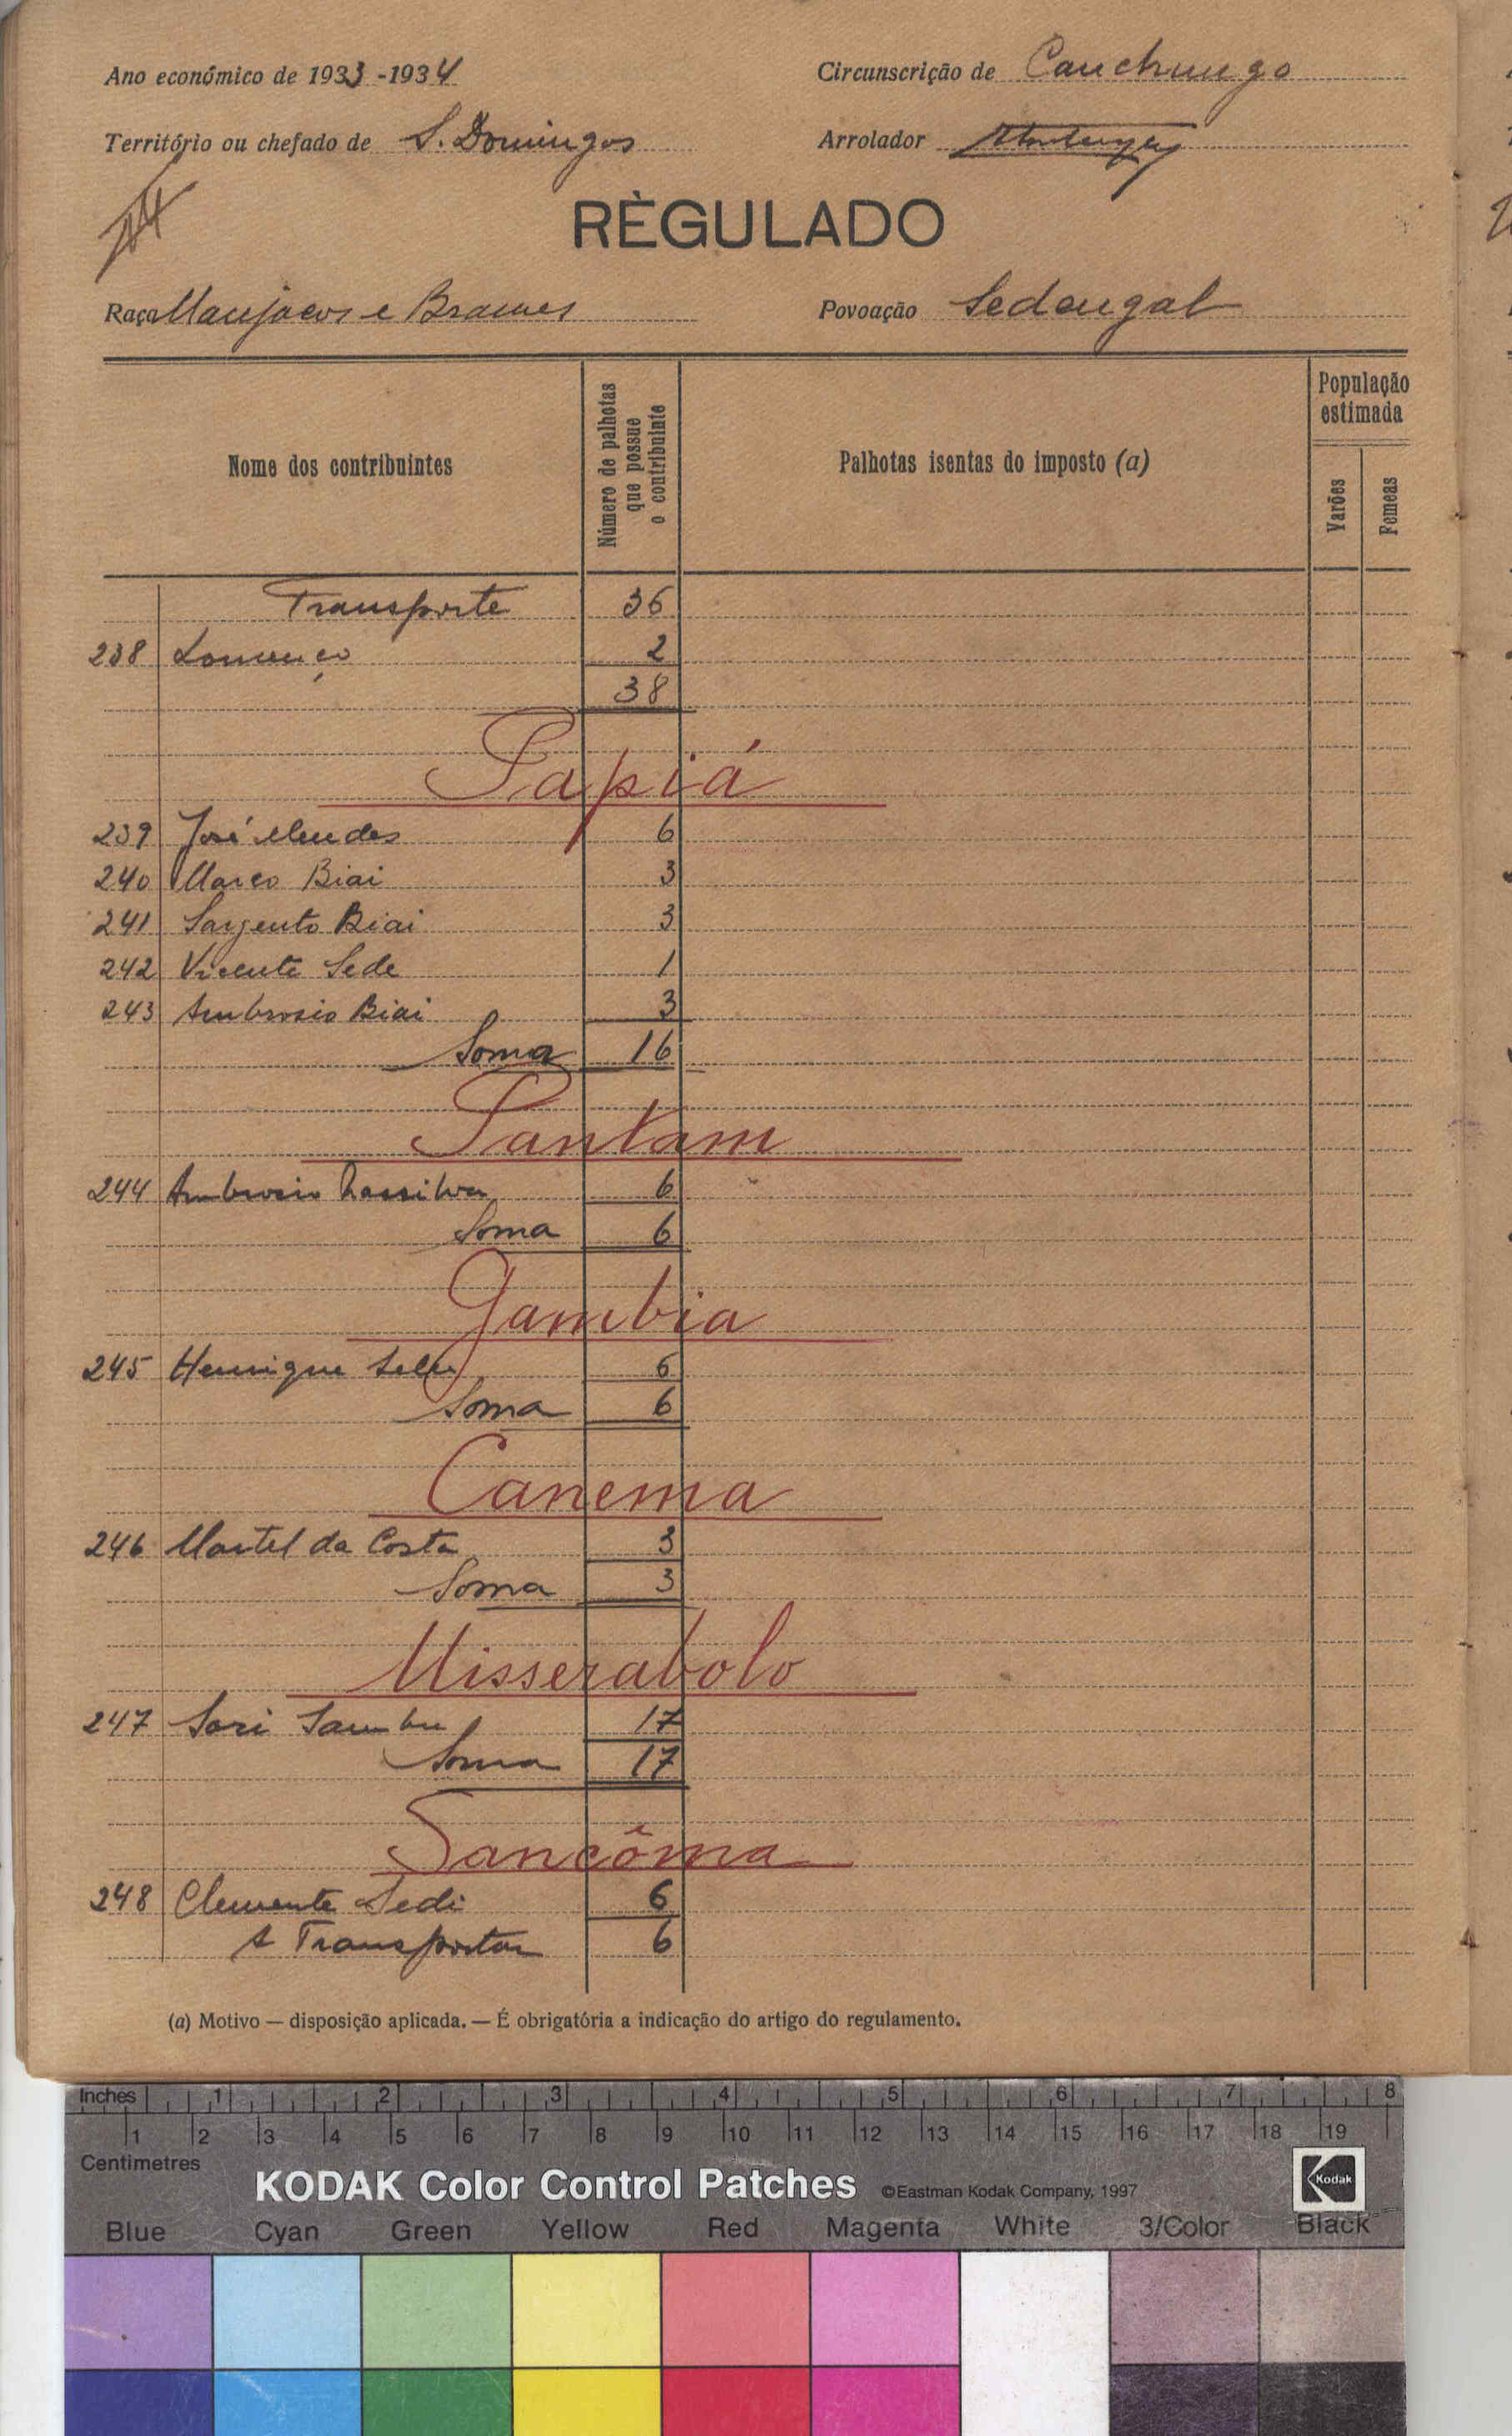 Ano económico de 1933-1934
Circunscrição de Canchungo
Território ou chefado de S. Domingos
Arrolador
RÈGULADO
Raça Manjacos e Brames
Povoação Sedengal
Nome dos contribuintes
Número de palhotas que possue o contribuinte
Palhotas isentas do imposto (a)
População estimada
Varões
Femeas
Transporte 36
238 Lourenço 2
38
Papiá
239 José Mendes 6
240 Marco Biai 3
241 Sargento Biai 3
242 Vicente Sede 1
243 Ambrosio Biai 3
Soma 16
Pantam
244 Ambrosio 6
Soma 6
Gambia
245 Henrique 6
Soma 6
Canema
246 Martel da Costa 3
Soma 3
Misserabolo
247 Sori Sambu 17
Soma 17
Sancôma
248 Clemente Sedi 6
A Transportar 6
(a) Motivo — disposição aplicada. — É obrigatória a indicação do artigo do regulamento.
Inches 1 2 3 4 5 6 7 8
1 2 3 4 5 6 7 8 9 10 11 12 13 14 15 16 17 18 19
Centimetres
KODAK Color Control Patches ©Eastman Kodak Company, 1997 Kodak
Blue Cyan Green Yellow Red Magenta White 3/Color Black